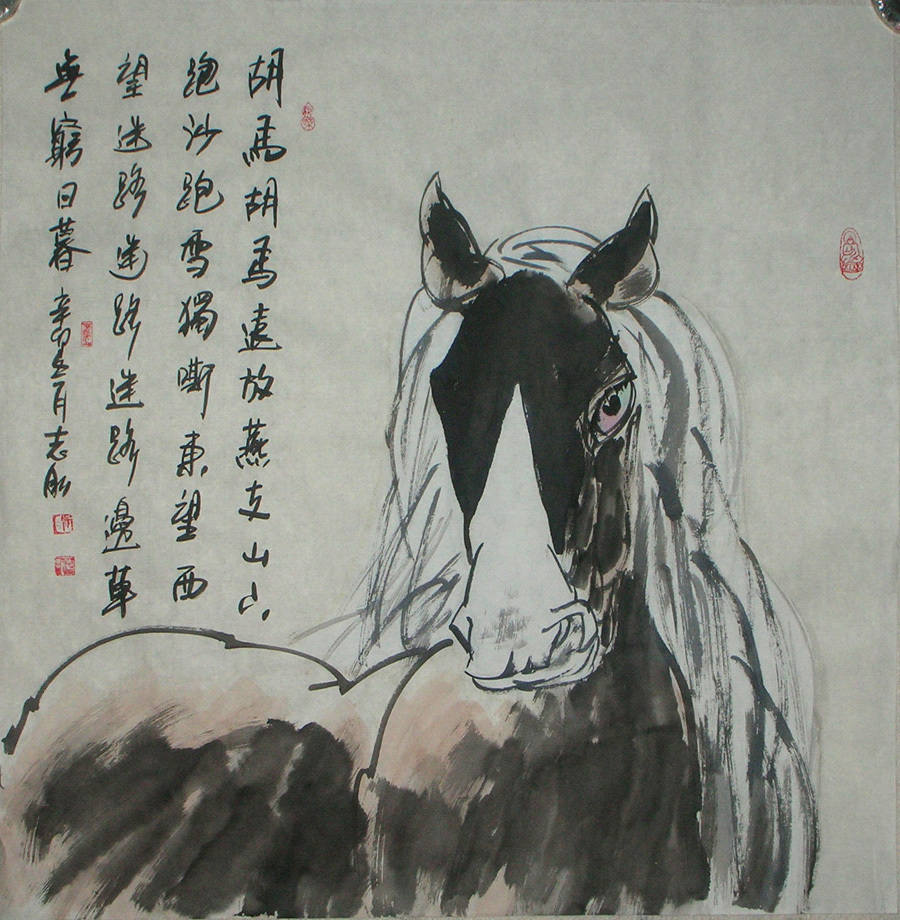 胡馬胡馬遠放燕支山下
跑沙跑雪獨嘶東望西
望迷路迷路迷路邊草
無窮日暮 辛卯 月志